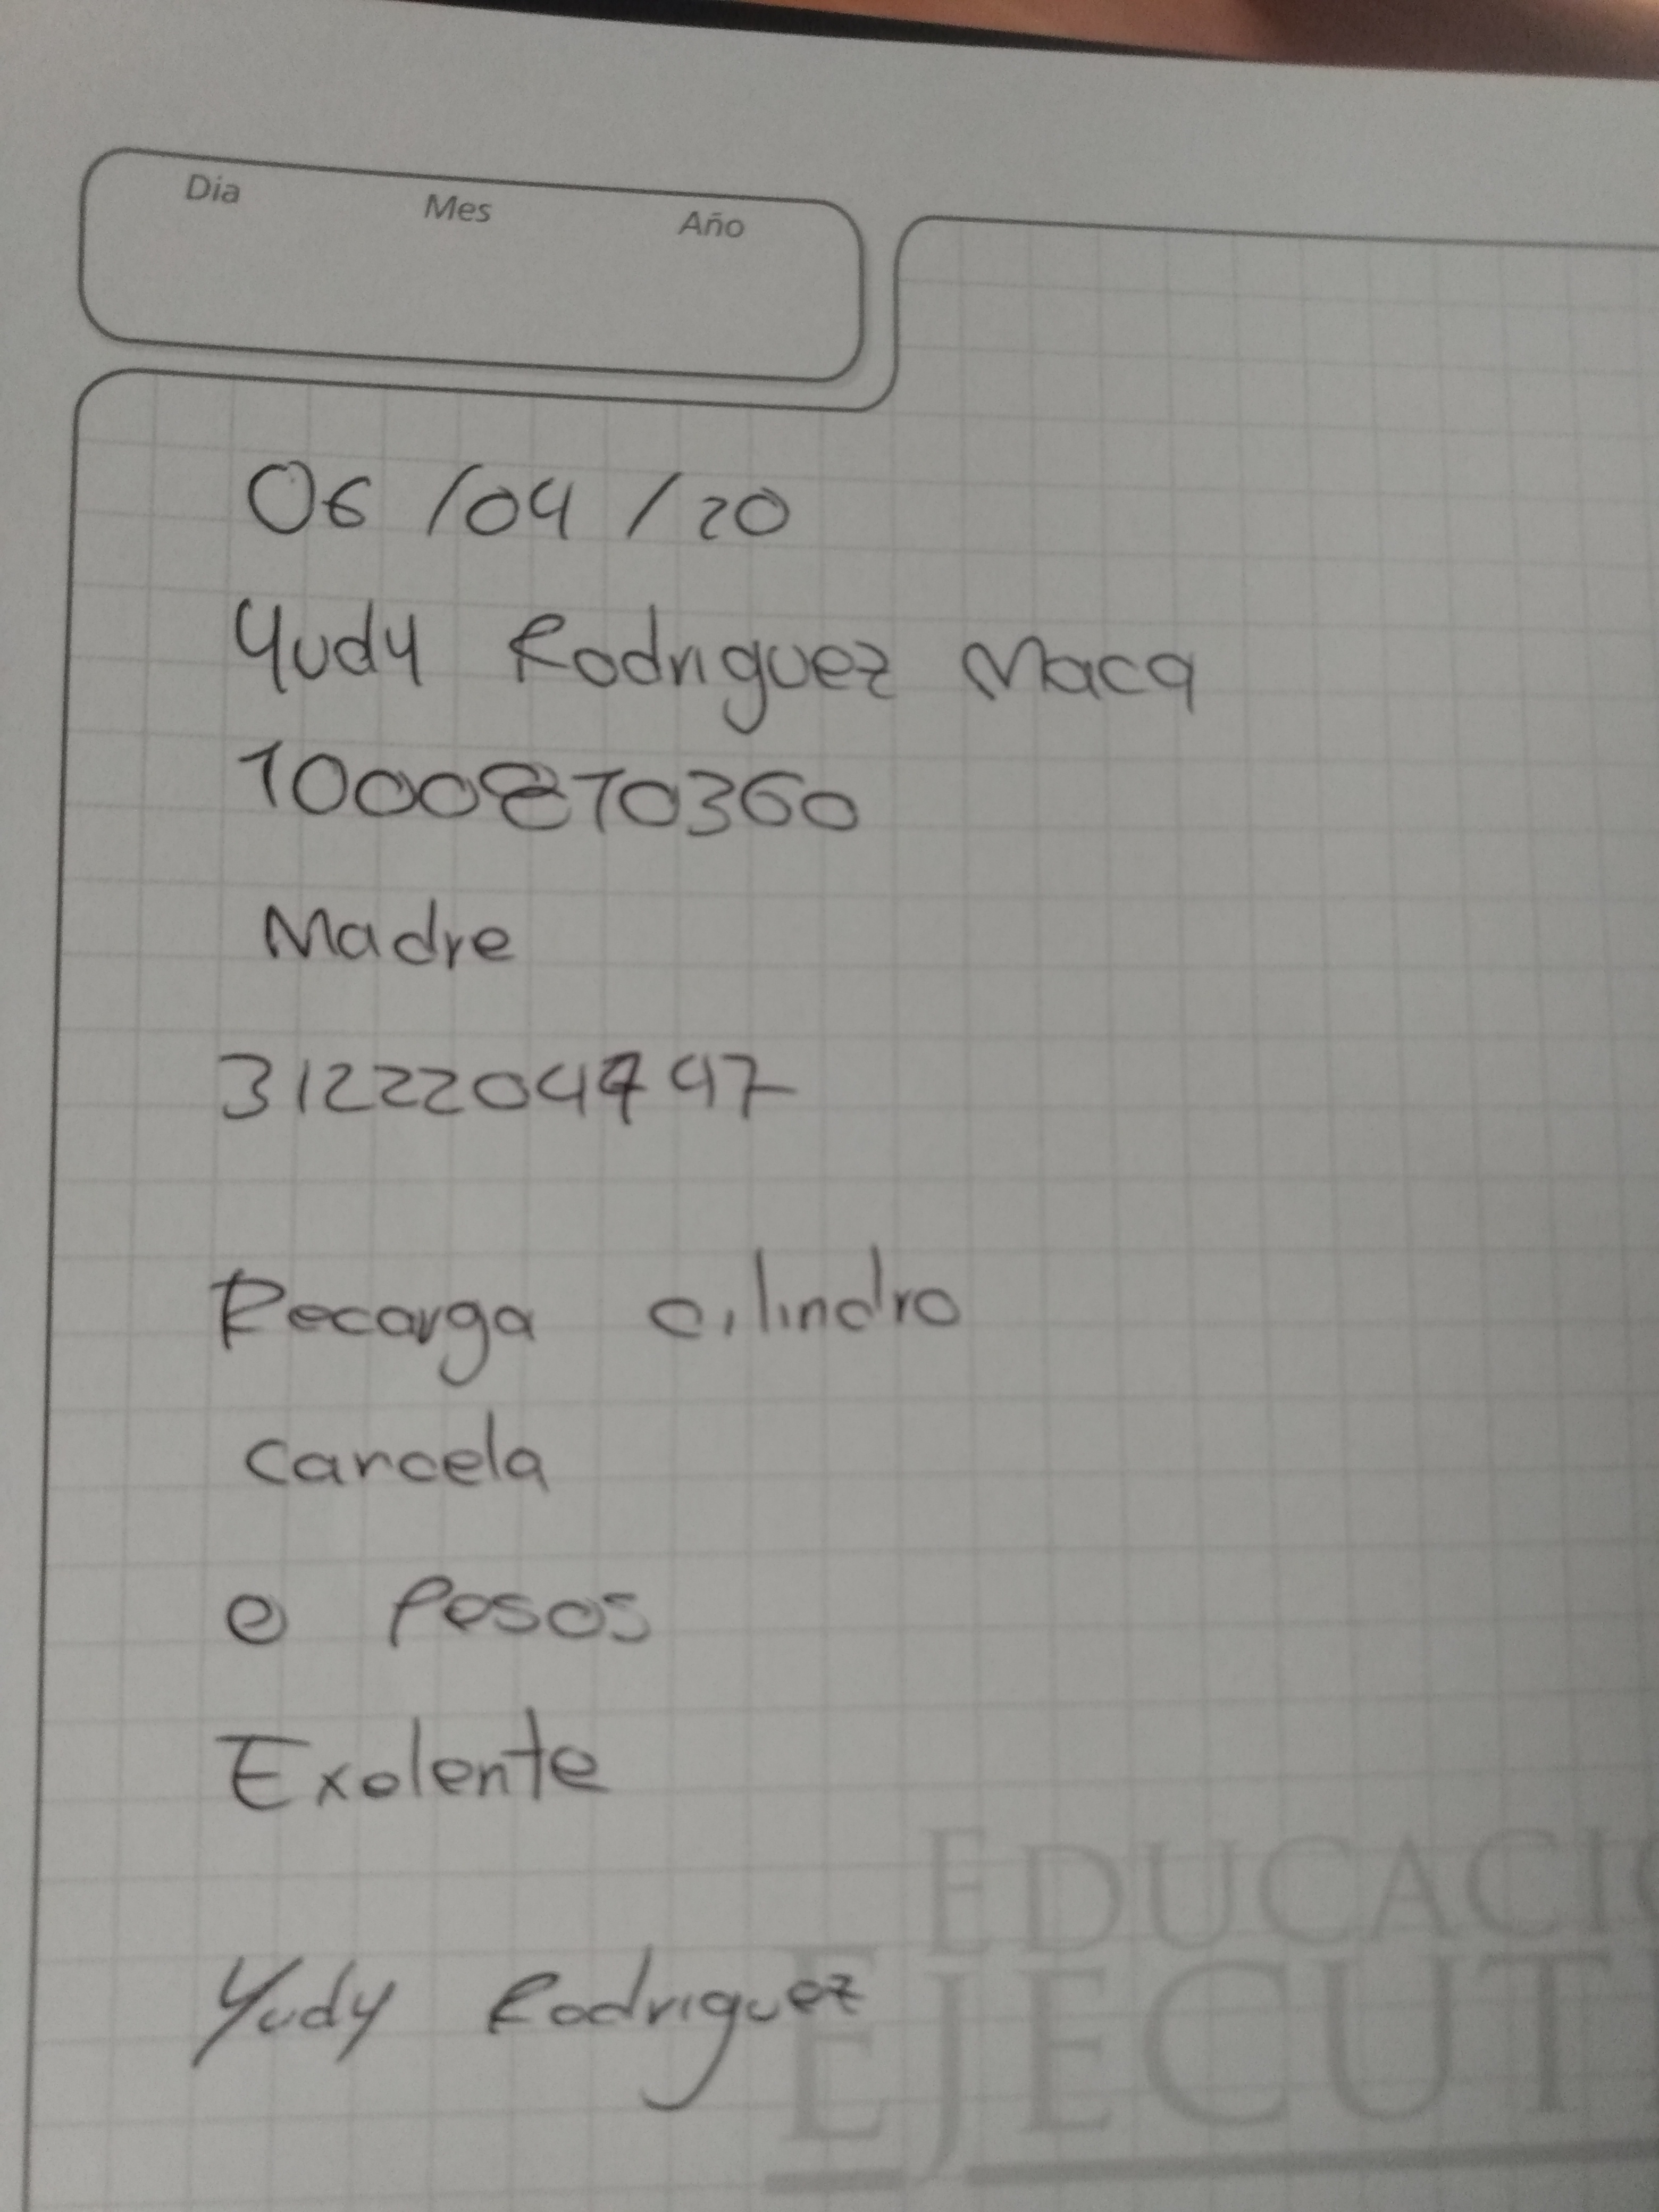 Dia Mes Año
06 /04 /20
Yudy Rodriguez Maca
1000870360
Madre
3122204797
Recarga cilindro
Cancela
0 Pesos
Exelente
Yudy Rodriguez
EDUCACIO
EJECUT